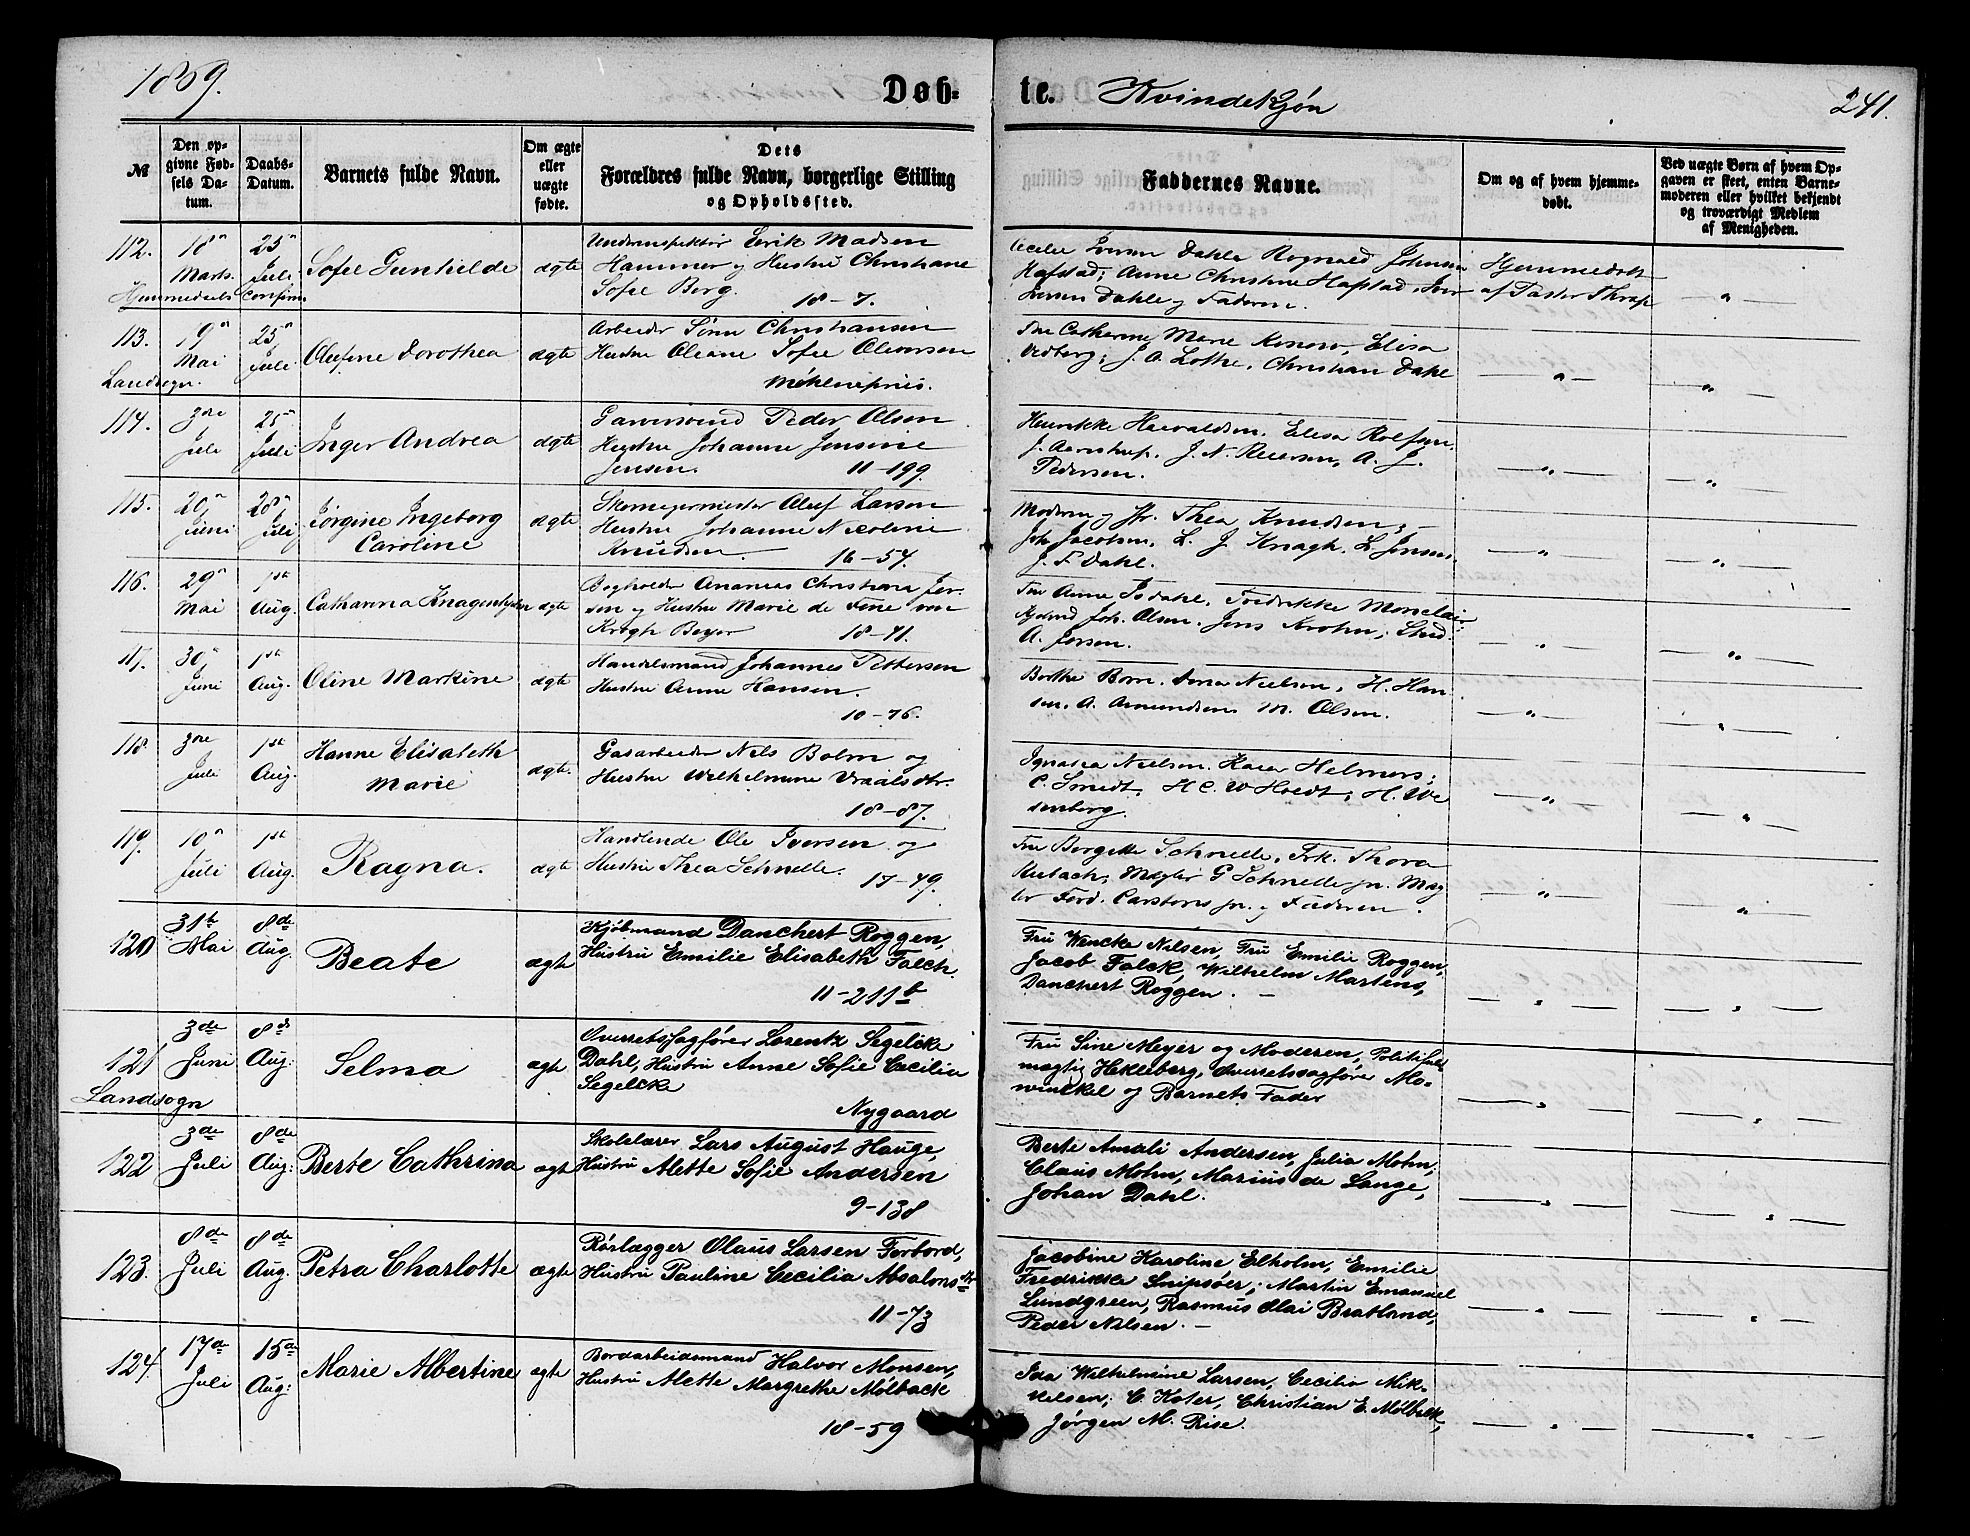 1869.
Døb-
te. Kvindekjøn
241.
№
Den op-
givne Fød-
sels Da-
tum.
Daabs-
Datum.
Barnets fulde Navn.
Om ægte
eller
uægte
fødte.
Dets
Forældres fulde Navn, borgerlige Stilling
og Opholdssted.
Faddernes Navne.
Om og af hvem hjemme-
døbt.
Ved uægte Børn af hvem Op-
gaven er skeet, enten Barne-
moderen eller hvilket bekjendt
og troværdigt Medlem
af Menigheden.
112.
18
Marts.
25
Juli
Sofie Gunhilde
ægte
Erik Madsen
Hammer og Hustru Christiane
Sofie Berg.
18-7.
Iversen Dahle Rognald Johnsen
Hafstad; Anne Christine Hafstad, Iver
Iversen Dahle og Faderen.
Hjemmedøbt
af Pastor Thrap
Hjemmedøbt Confirm
113.
9
Mai
25
Juli
Olufine Dorothea
ægte
Arbeider Sønn Christiansen
Hustru Oleane Sofie Oleversen
Møhlenpris.
Fru Catharine Marie Konow, Elisa
Vedberg; J. A. Lothe, Christian Dahl
Landsogn.
114.
3die
Juli
25
Juli
Inger Andrea
ægte
Garversvend Peder Olsen
Hustru Johanne Jensine
Jensen.
11-199.
Henrikke Harvaldsen, Elisa Rolfsen,
J. Aarestrup, J. N. Reiersen, A. J.
Pedersen.
115.
20
Juni
28
Juli
Jørgine Ingeborg
Caroline
ægte
Skomagermester Oluf Larsen
Hustru Johanne Nicoline
Knudsen
16-54.
Moderen og Jfr. Thea Knudsen;
Joh Jacobsen, L. J. Knagh, L. Jensen,
J. F Dahl.
116.
29
Mai
1st
Aug.
Catharina Knagenhjelm
ægte
Bogholder Ananias Christian Jer-
sen og Hustru Marie de Fine von
Krogh Beyer
18-41.
Fru Anne Isdahl, Fredrikke Monclair
Joh. Olsen, Jens Krohn, Stud.
A. Jersen.
117.
30
Juni
1st
Aug.
Oline Markine
ægte
Handelsmand Johannes Pettersen
Hustru Anne Hansen.
10-76.
Berthe Born, Anna Nielsen, H. Han
sen. A. Amundsen M. Olsen.
118.
3die
Juli
1st
Aug.
Hanne Elisabeth
Marie
ægte.
Gasarbeider Nils Bolm og
Hustru Wilhelmine Vraalsdtr.
18-87.
Ignasea Nielsen. Karen Helmers;
C. Smedt, H C. W Hoedt, H. We
senberg.
119.
10
Juli
1st
Aug.
Ragna.
ægte
Handlende Ole Iversen og
Hustru Thea Schnelle.
17-49.
Fru Bergitte Schnelle, Frk. Thora
Kubach, Mægler G Schnelle jn. Mæg
ler Ferd. Carstens jn. og Faderen.
120
31te
Mai
8de
Aug.
Beate
ægte
Kjøbmand Danchert Roggen,
Hustru Emilie Elisabeth Falch.
11-211b
Fru Wencke Nilsen, Fru Emilie Roggen,
Jacob Falck, Wilhelm Martens,
Danchert Roggen. -
121
3de
Juni
8de
Aug:
Selma
ægte
Overretssagfører Lorentz Segelcke
Dahl, Hustru Anne Sofie Cecilia
Segelcke
Nygaard
Fru Sine Meyer og Moderen, Politifuld
mægtig Hekleberg, Overretssagfører Mo-
winckel og Barnets Fader
Landsogn
122
3de
Juli
8de
Aug:
Berte Cathrina
ægte
Skolelærer Lars August Hauge,
Hustru Alette Sofie Andersen
9-138
Berte Amali Andersen, Julia Mohn,
Claus Mohn, Marius de Lange,
Johan Dahl.
123.
8de
Juli
8de
Aug.
Petra Charlotte
ægte
Rørlægger Olaus Larsen Forbord,
Hustru Pauline Cecilia Absalonsdtr
11-73
Jacobine Karoline Elholm, Emilie
Fredrikke Snipsøer, Martin Emanuel
Lundgreen, Rasmus Olai Bratland,
Peder Nilsen. -
124.
17de
Juli
15de
Aug:
Marie Albertine
ægte
Bordarbeidsmand Halvor Monsen,
Hustru Alette Margrethe Mølback
18-59
Ida Wilhelmine Larsen, Cecilia Mik-
kelsen; C. Koter, Christian E. Mølback,
Jørgen M. Rise.